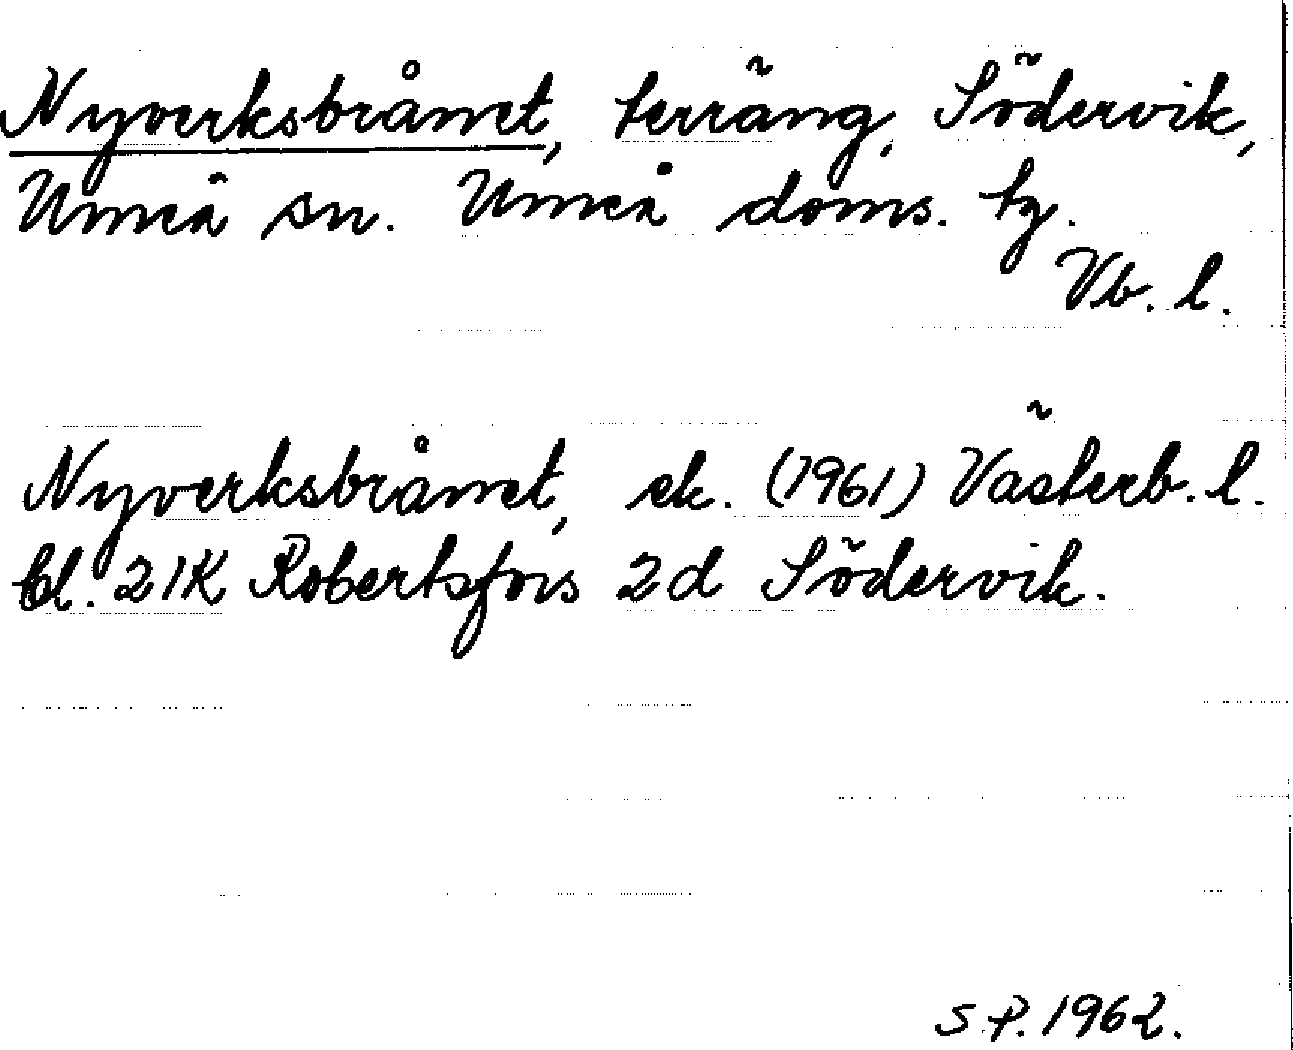 Nyverksbrånet, terräng, Södervik,
Umeå sn. Umeå doms. tg.
Vb. l.
Nyverksbrånet, ek. (1961) Västerb. l.
bl. 21K Robertsfors 2d Södervik.
S.P. 1962.